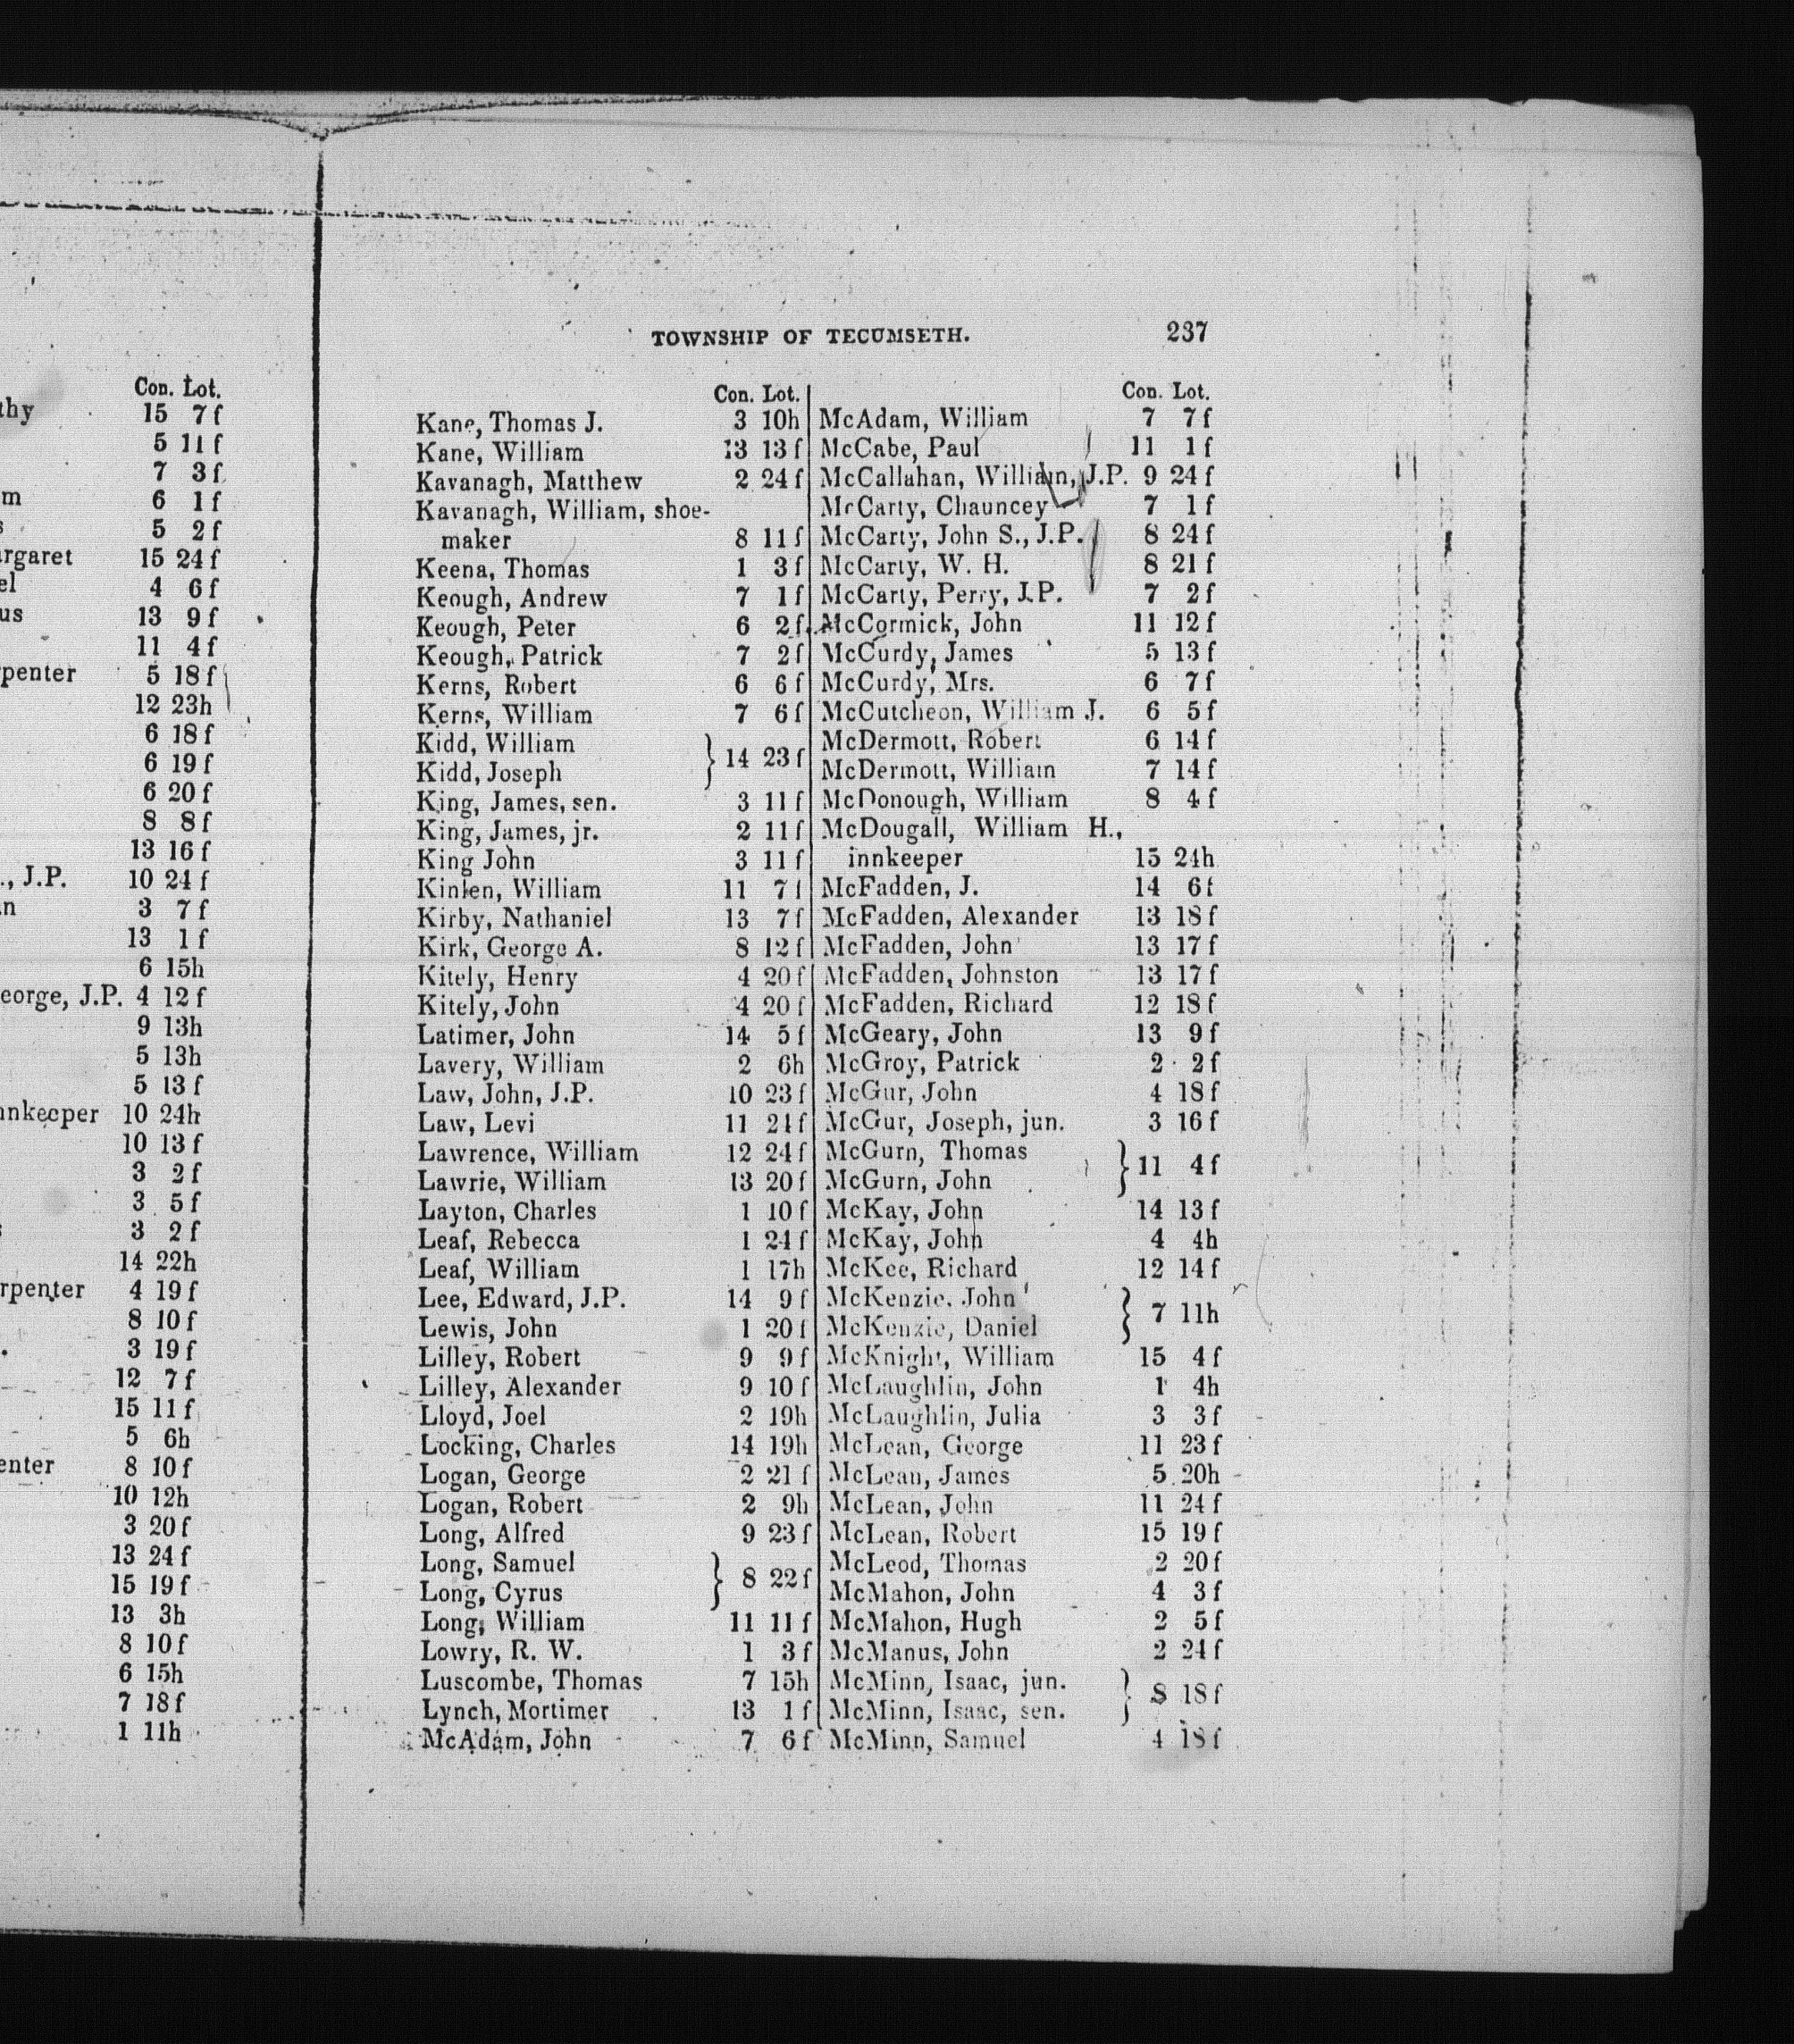 Con. Lot.
thy 15 7 f
5 11 f
7 3 f
m 6 1 f
s 5 2 f
argaret 15 24 f
el 4 6 f
us 13 9 f
11 4 f
penter 5 18 f
12 23h
6 18 f
6 19 f
6 20 f
8 8 f
13 16 f
., J.P. 10 24 f
n 3 7 f
13 1 f
6 15h
eorge, J.P. 4 12 f
9 13h
5 13h
5 13 f
nnkeeper 10 24h
10 13 f
3 2 f
3 5 f
3 2 f
14 22h
rpenter 4 19 f
8 10 f
3 19 f
12 7 f
15 11 f
5 6h
enter 8 10 f
10 12h
3 20 f
13 24 f
15 19 f
13 3h
8 10 f
6 15h
7 18 f
1 11h
TOWNSHIP OF TECUMSETH. 237
Con. Lot.
Kane, Thomas J. 3 10h
Kane, William 13 13 f
Kavanagh, Matthew 2 24 f
Kavanagh, William, shoe-
maker 8 11 f
Keena, Thomas 1 3 f
Keough, Andrew 7 1 f
Keough, Peter 6 2 f
Keough, Patrick 7 2 f
Kerns, Robert 6 6 f
Kerns, William 7 6 f
Kidd, William
Kidd, Joseph } 14 23 f
King, James, sen. 3 11 f
King, James, jr. 2 11 f
King John 3 11 f
Kinlen, William 11 7 f
Kirby, Nathaniel 13 7 f
Kirk, George A. 8 12 f
Kitely, Henry 4 20 f
Kitely, John 4 20 f
Latimer, John 14 5 f
Lavery, William 2 6h
Law, John, J.P. 10 23 f
Law, Levi 11 24 f
Lawrence, William 12 24 f
Lawrie, William 13 20 f
Layton, Charles 1 10 f
Leaf, Rebecca 1 24 f
Leaf, William 1 17h
Lee, Edward, J.P. 14 9 f
Lewis, John 1 20 f
Lilley, Robert 9 9 f
Lilley, Alexander 9 10 f
Lloyd, Joel 2 19h
Locking, Charles 14 19h
Logan, George 2 21 f
Logan, Robert 2 9h
Long, Alfred 9 23 f
Long, Samuel
Long, Cyrus } 8 22 f
Long, William 11 11 f
Lowry, R. W. 1 3 f
Luscombe, Thomas 7 15h
Lynch, Mortimer 13 1 f
McAdam, John 7 6 f
Con. Lot.
McAdam, William 7 7 f
McCabe, Paul 11 1 f
McCallahan, William, J.P. 9 24 f
McCarty, Chauncey 7 1 f
McCarty, John S., J.P. 8 24 f
McCarty, W. H. 8 21 f
McCarty, Perry, J.P. 7 2 f
McCormick, John 11 12 f
McCurdy, James 5 13 f
McCurdy, Mrs. 6 7 f
McCutcheon, William J. 6 5 f
McDermott, Robert 6 14 f
McDermott, William 7 14 f
McDonough, William 8 4 f
McDougall, William H.,
innkeeper 15 24h
McFadden, J. 14 6 f
McFadden, Alexander 13 18 f
McFadden, John 13 17 f
McFadden, Johnston 13 17 f
McFadden, Richard 12 18 f
McGeary, John 13 9 f
McGroy, Patrick 2 2 f
McGur, John 4 18 f
McGur, Joseph, jun. 3 16 f
McGurn, Thomas
McGurn, John } 11 4 f
McKay, John 14 13 f
McKay, John 4 4h
McKee, Richard 12 14 f
McKenzie, John
McKenzie, Daniel } 7 11h
McKnight, William 15 4 f
McLaughlin, John 1 4h
McLaughlin, Julia 3 3 f
McLean, George 11 23 f
McLean, James 5 20h
McLean, John 11 24 f
McLean, Robert 15 19 f
McLeod, Thomas 2 20 f
McMahon, John 4 3 f
McMahon, Hugh 2 5 f
McManus, John 2 24 f
McMinn, Isaac, jun.
McMinn, Isaac, sen. } 8 18 f
McMinn, Samuel 4 18 f